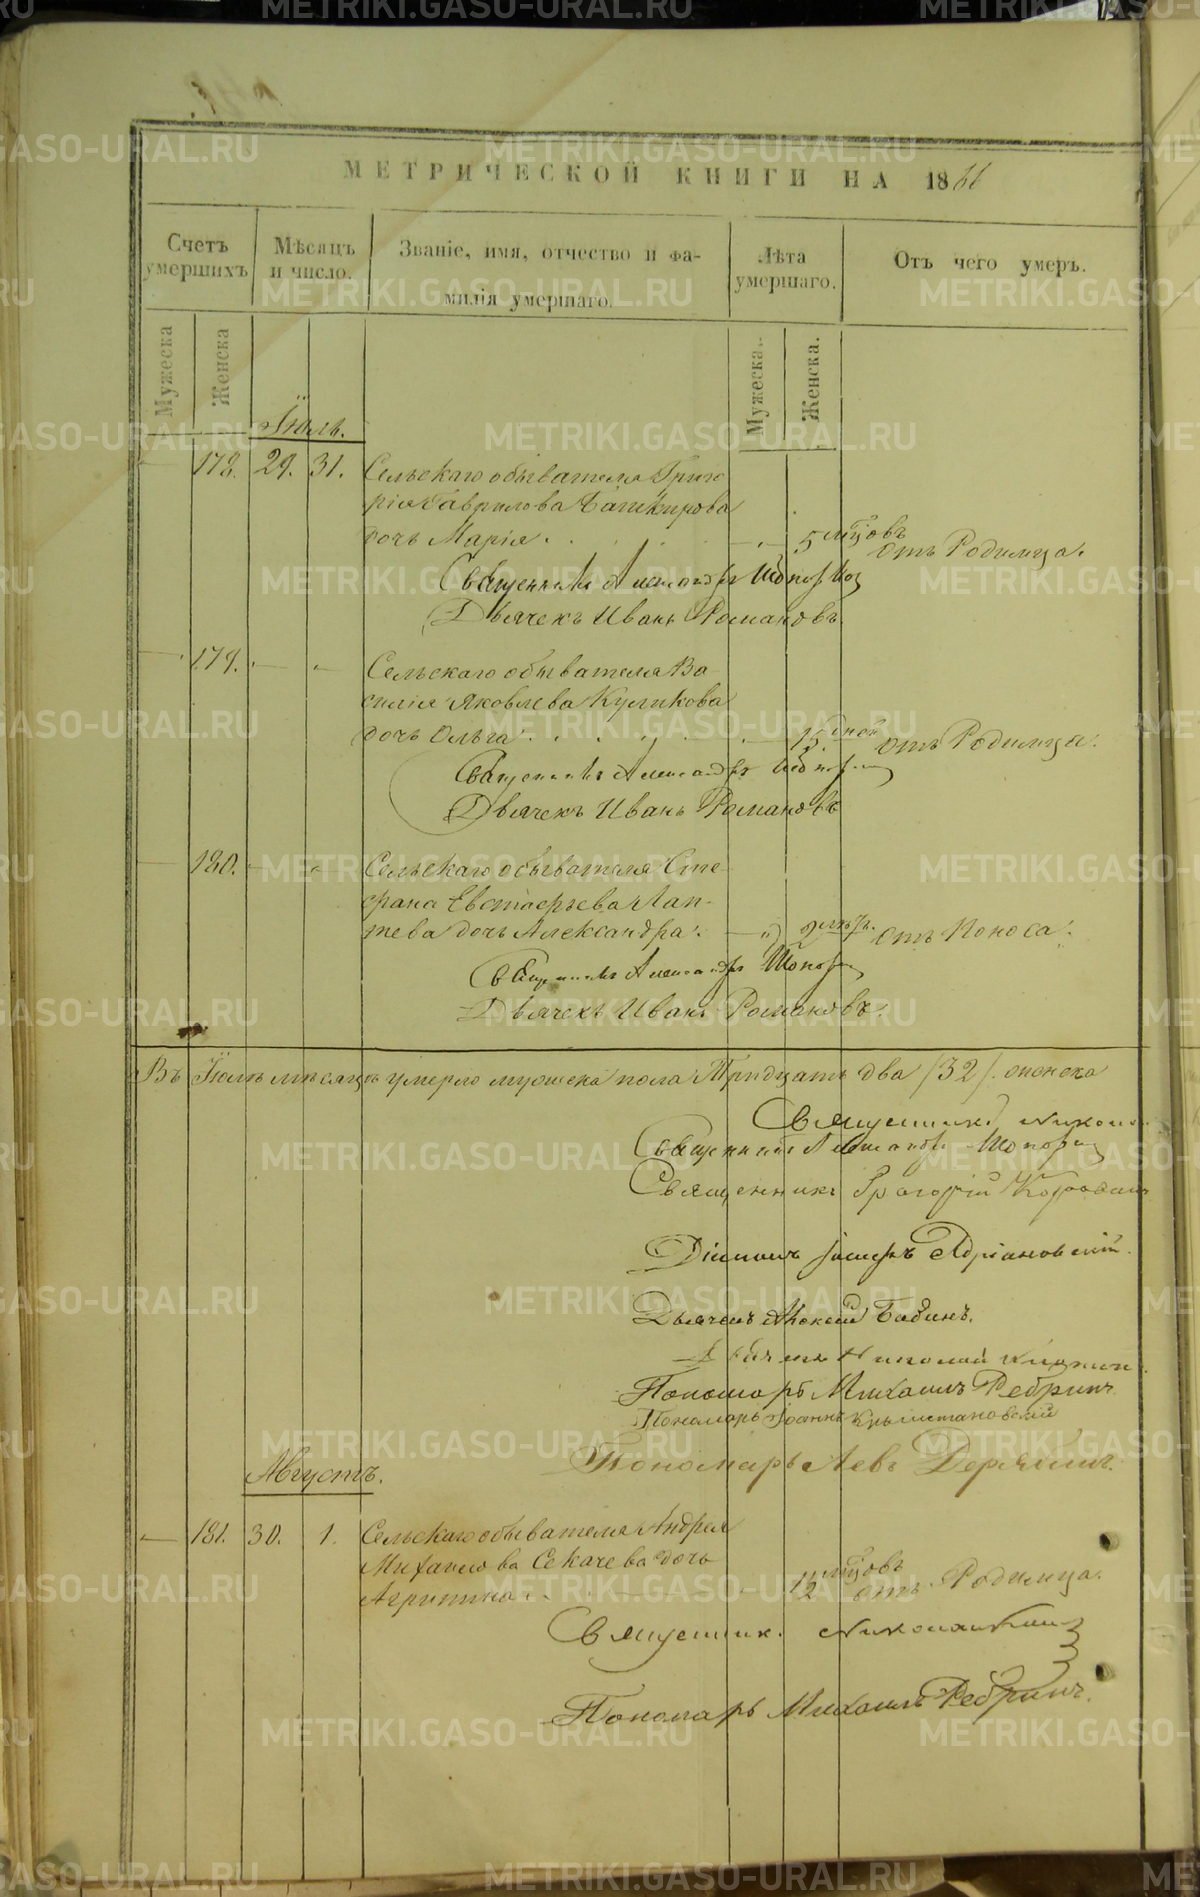 МЕТРИЧЕСКОЙ КНИГИ НА 1866
Счетъ умершихъ
Мѣсяцъ и число.
Званіе, имя, отчество и фа-
милія умершаго.
Лѣта умершаго.
Отъ чего умеръ.
Мужеска
Женска
Мужеска.
Женска.
Іюль.
178. 29. 31. Сельскаго обывателя Григо
рія Гаврилова Башкирова
дочь Марія. 5 мцовъ отъ Родимца.
Священникъ Александръ
Дьячекъ Иванъ Романовъ
179. Сельскаго обывателя Ва
силія Яковлева Куликова
дочь Ольга 15 дней отъ Родимца.
Священникъ Александръ
Дьячекъ Иванъ Романовъ
180. Сельскаго обывателя Сте
фана Евстафьева Лап-
тева дочь Александра. 2 отъ Поноса.
Священникъ Александръ
Дьячекъ Иванъ Романовъ.
Въ Іюлѣ мѣсяцѣ умерло мужеска пола Тридцать два /32/. женска
Священникъ
Священникъ Александръ
Священникъ Григорій
Діаконъ Адріановскій.
Дьячекъ Алексій Бабинъ.
Николай
Пономарь Михаилъ Ребринъ
Пономарь Іоаннъ
Пономарь Левъ Дерябинъ.
Августъ.
181. 30. 1. Сельскаго обывателя Андрея
Михаилова Секачева дочь
Агрипина. 12 мцовъ отъ Родимца.
Священникъ
Пономарь Михаилъ Ребринъ.
METRIKI.GASO-URAL.RU